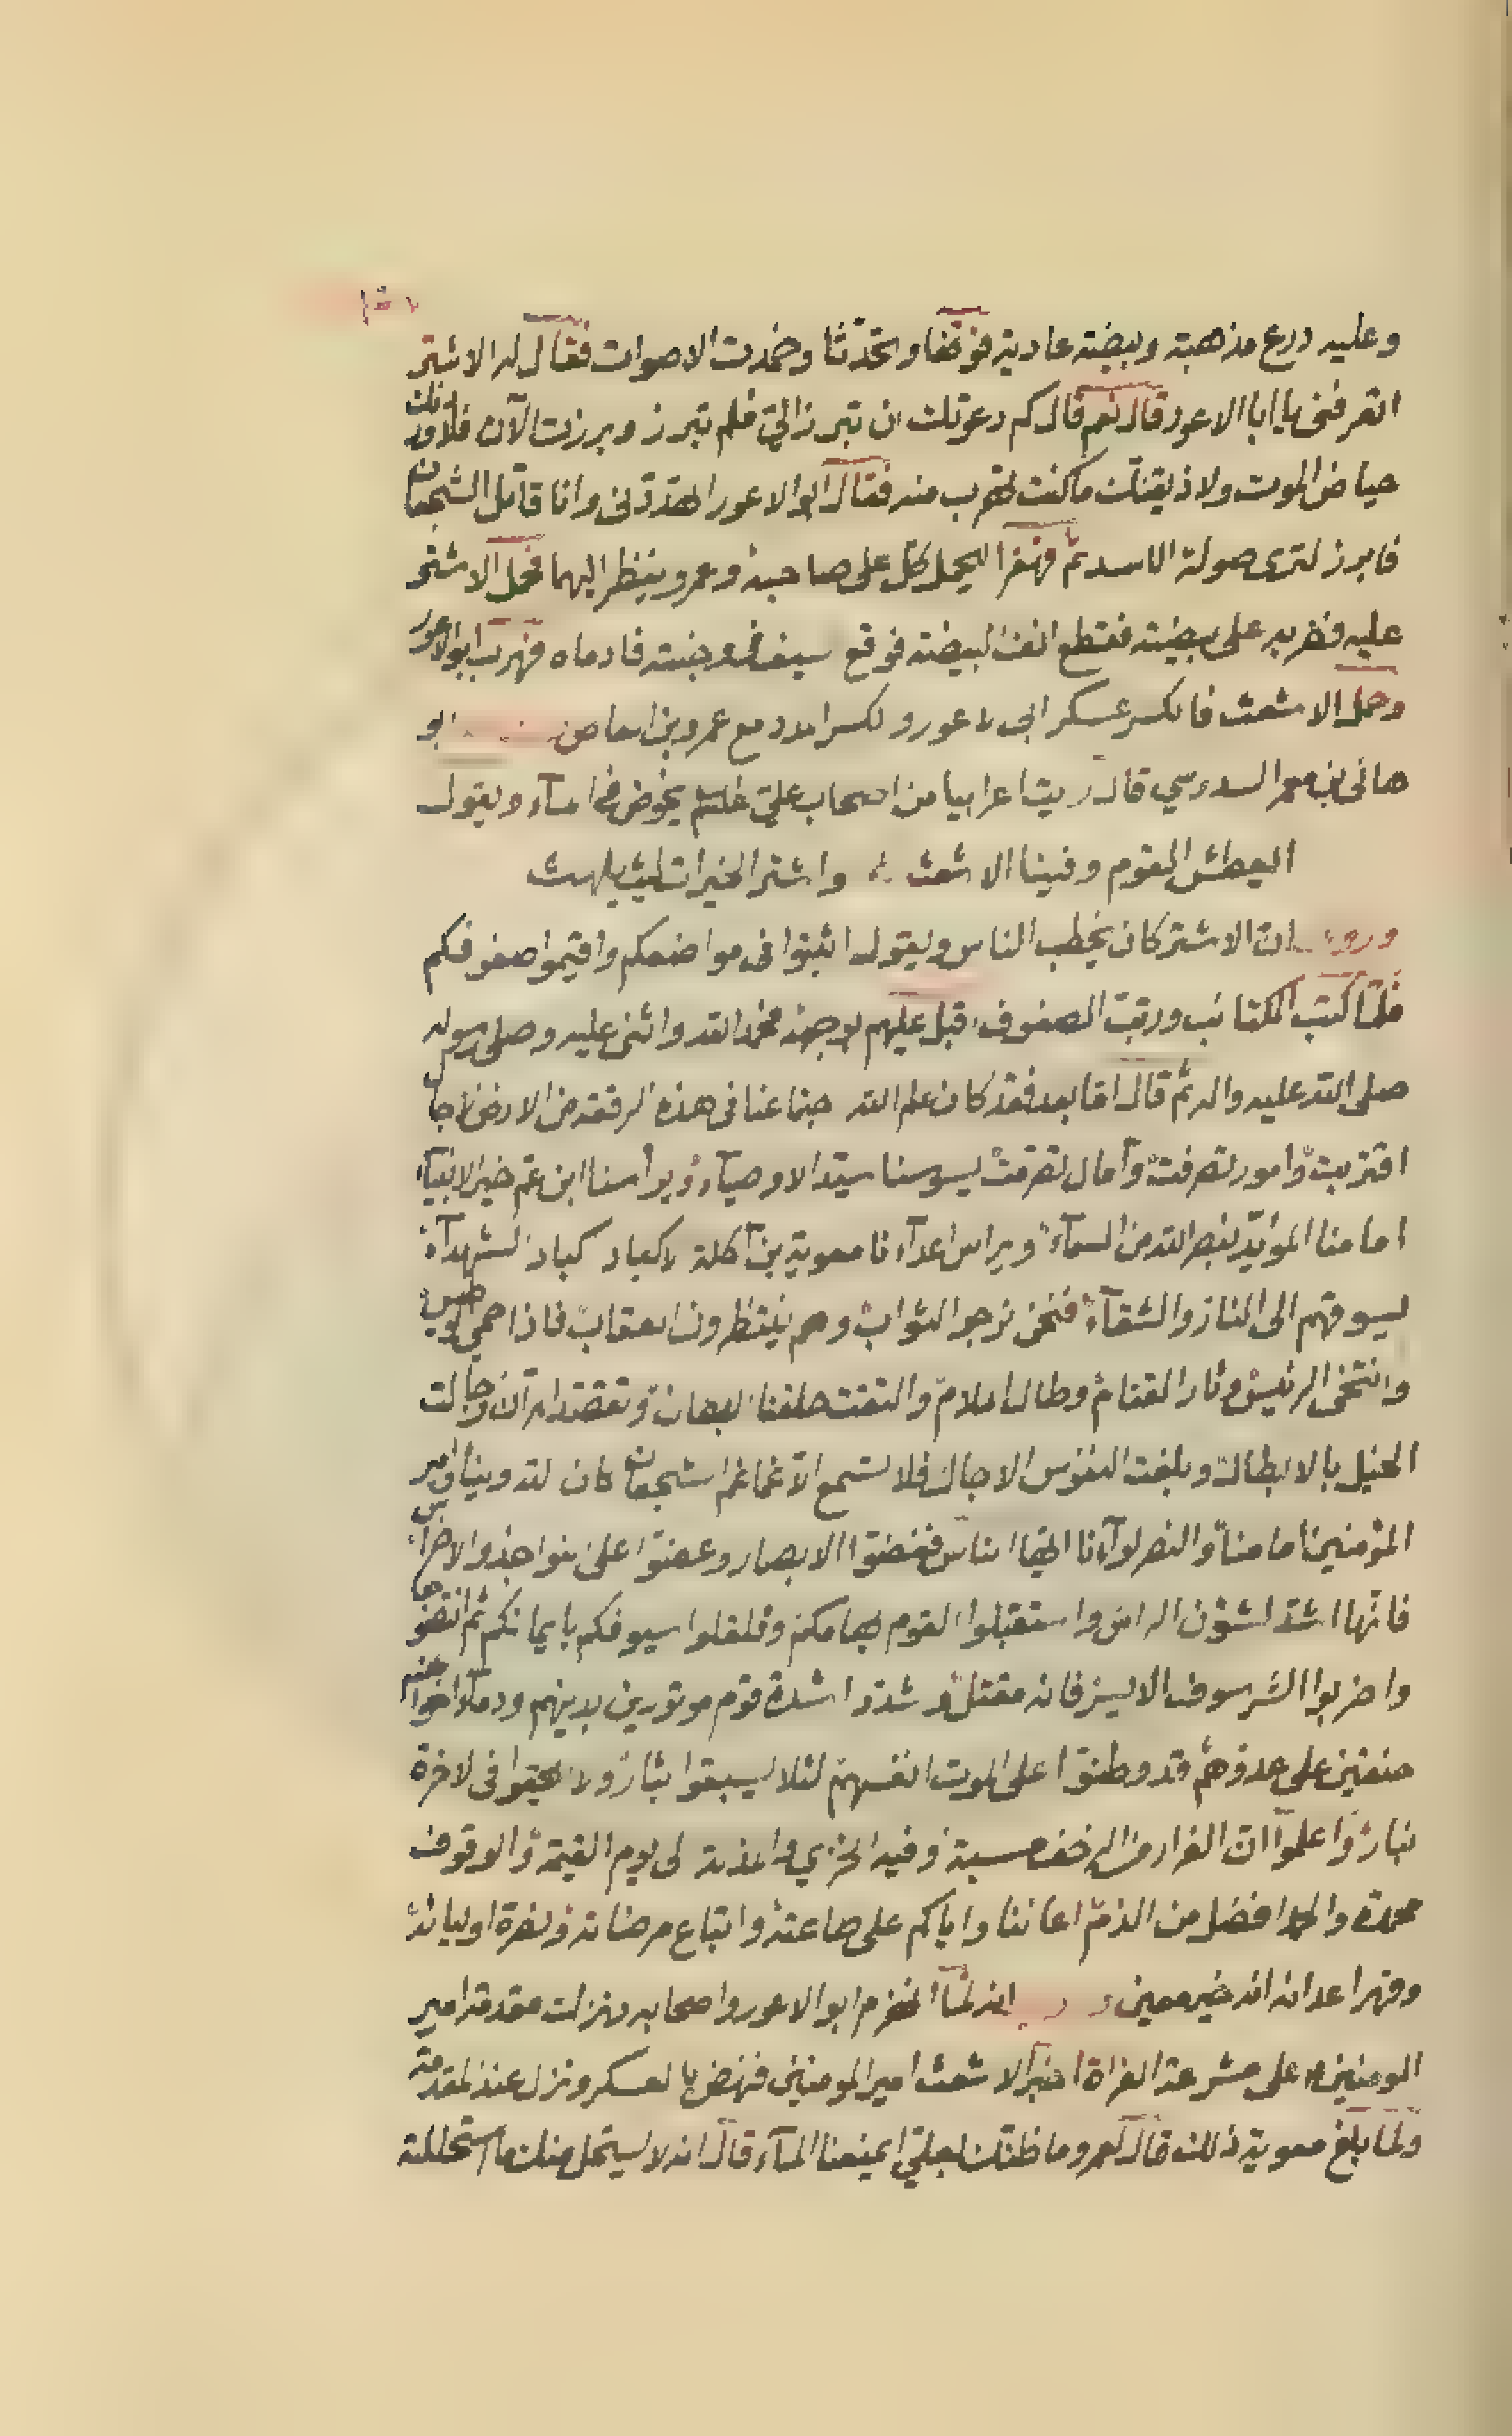 وعليه درع مذهبة وبيضة عادية فوقفا وتحدثا وخمدت الاصوات فقال له الاشتر
اتعرفنى يا ابا الاعور قال نعم قال كم دعوتك ان تبرز الىّ فلم تبرز وبرزت الآن فلاوردنك
حياض الموت ولاذيقنك ما كنت تهرب منه فقال ابو الاعور اتهددنى وانا قاتل الشجعان
فابرز لترى صولة الاسد ثم قهقرا ليحمل كل على صاحبه وعمرو ينظر اليهما فحمل الاشتر
عليه فضربه على بيضته فقطع انف البيضة فوقع سيفه فى وجنته فادماه فهرب ابو الاعور
وحمل الاشعث فانكسر عسكر ابى الاعور وانكسر المدد مع عمرو بن العاص ابو
هانى بن معمر السدوسي قال رايت اعرابيا من اصحاب علىّ يخوض فى المآء ويقول
ايعطش القوم وفينا الاشعث واشتر الخيرات ليث يلهث
وروى ان الاشتر كان يخطب الناس ويقول اثبتوا فى مواضعكم واقيموا صفوفكم
فلمّا كتب الكتائب ورتب الصفوف اقبل عليهم بوجهه فحمد الله واثنى عليه وصلى رسوله
صلى الله عليه واله ثم قال امّا بعد فقد كان علم الله اجتماعنا فى هذه الرقعة من الارض لاجال
اقتربت وامور تصرفت وآمال تصرمت يسوسنا سيّد الاوصيآء ويرأسنا ابن عم خير الانبيآء
امامنا المؤيّد بنصر الله من السمآء ويراس اعدآءنا معوية بن آكلة الاكباد كباد الشهدآء
يسوقهم الى النار والشقآء فنحن نرجو الثواب وهم ينتظرون العقاب فاذا حمي الوطيس
وانتخى الرئيس وثار القتام وطال الملام والتقت حلقتا البطان وتقصّد المرّان وجالت
الخيل بالابطال وبلغت النفوس الاجال فلا تسمع الا غماغم الشجعان كان الله ولينا وامير
المؤمنين امامنا والنصر لوآءنا ايها الناس فغضّوا الابصار وعضّوا على النواجذ والاضراس
فانّها اشدّ لشؤن الراس واستقبلوا القوم بهامكم وقلقلوا سيوفكم بايمانكم ثم انتضوها
واضربوا الشرسوف الايسر فانه مقتل وشدوا شدة قوم موتورين بدينهم ودمآء اخوانهم
حنقين على عدوهم قد وطنوا على الموت انفسهم لئلا يسبقوا بثار ولا يلحقوا فى الاخرة
بنار واعلموا ان الفرار من الزحف مسبة وفيه الخزي والمذمة الى يوم القيمة والوقوف
محمدة والحمد افضل من الذمّ اعاننا واياكم على طاعته واتباع مرضاته ونصرة اوليائه
وقهر اعدائه انه خير معين انه لمّا انهزم ابو الاعور واصحابه ونزلت مقدمة امير
المومنين على مشرعة الفراة اخبر الاشعث امير المومنين فنهض بالعسكر ونزل عند المقدمة
ولما بلغ معوية ذلك قال لعمرو ما ظنك بعلىّ ايمنعنا المآء قال انه لا يستحل منك ما استحللته